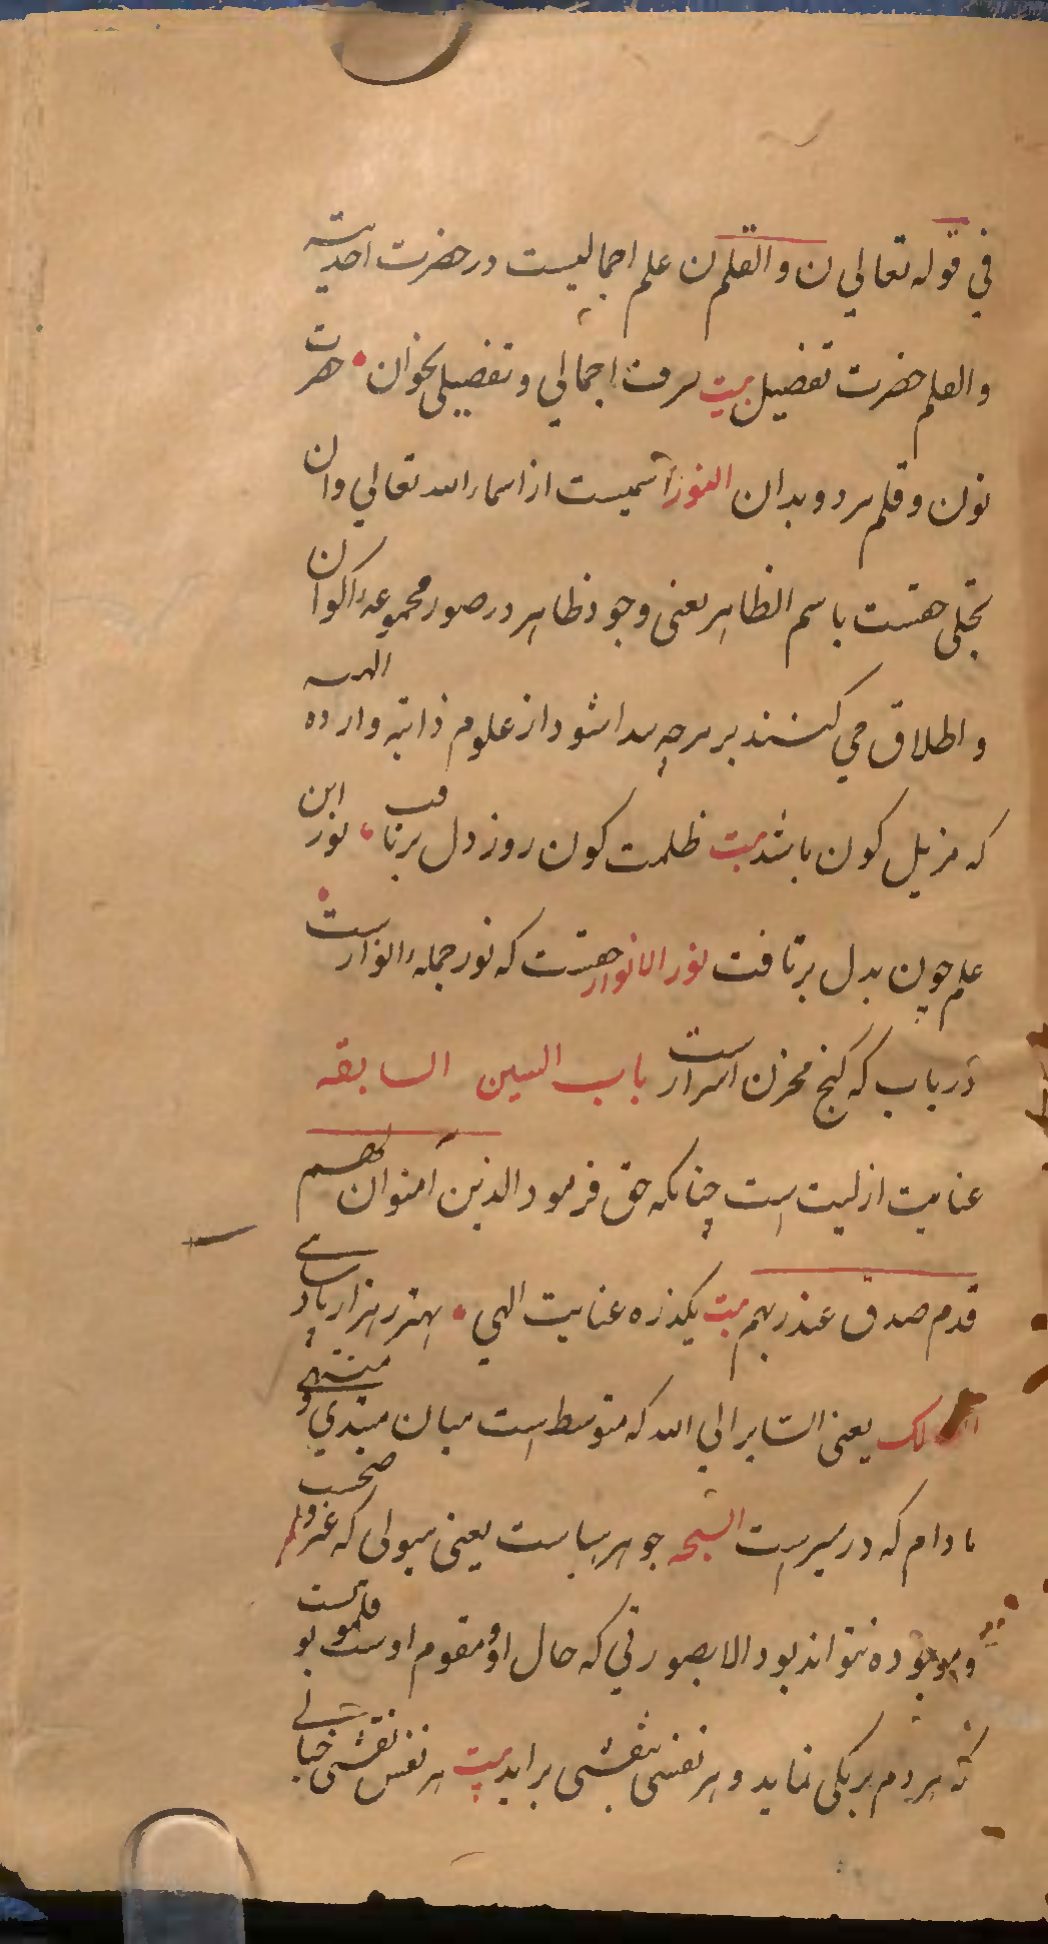 في قوله تعالي ن والقلم ن علم اجمالیست در حضرت احدیته
والعلم حضرت تفصیل بیت سرفت اجمالي و تفصیلی بخوان حرت
نون و قلم هر دو بدان النور اسمیست از اسماء الله تعالي وان
تجلی حقست باسم الظاهر یعنی وجود ظاهر در صور مجموعهٔ اکوان
و اطلاق مي کنند بر هرچه پیدا شود از علوم ذاتیه و وارده الهیه
که مزیل کون باشد بیت ظلمت کون روز دل برتافت نور این
علم چون بدل برتافت نور الانوار حقست که نور جملهٔ انوارست
دریاب که گنج مخزن اسرارست باب السین السابقه
عنایت ازلیت است چنانکه حق فرمود الذین امنوا ان لهم
قدم صدق عند ربهم بیت یکذره عنایت الهي بهتر ز هزار پادشاهی
السالک یعنی السایر الي الله که متوسط است میان مبتدي و منتهی
مادام که در سیرست السبحه جوهر هباست یعنی هیولی که غیر واضحست
و موجوده نتواند بود الا بصورتي که حال او و مقوم اوست بو قلمونست
که هر دم برنگی نماید و هر نفسی بنقشی براید بیت هر نفس نقشی خیالی